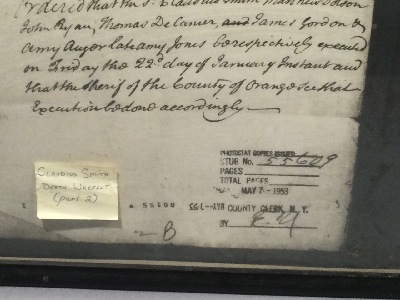 rdered that the s. Claudius Smith Matthew Dolson
John Ryan, Thomas De Camer, and James Gordon &
Amy Auger late Amy Jones be respectively executed
on Friday the 22d day of January Instant and
that the Sherif of the County of Orange see that
Execution be done accordingly
CLAUDIUS SMITH
DEATH WARRANT
(part 2)
PHOTOSTAT COPIES ISSUED
STUB No. 55609
PAGES
TOTAL PAGES
MAY 7 - 1953
COUNTY CLERK, N. Y.
BY
B